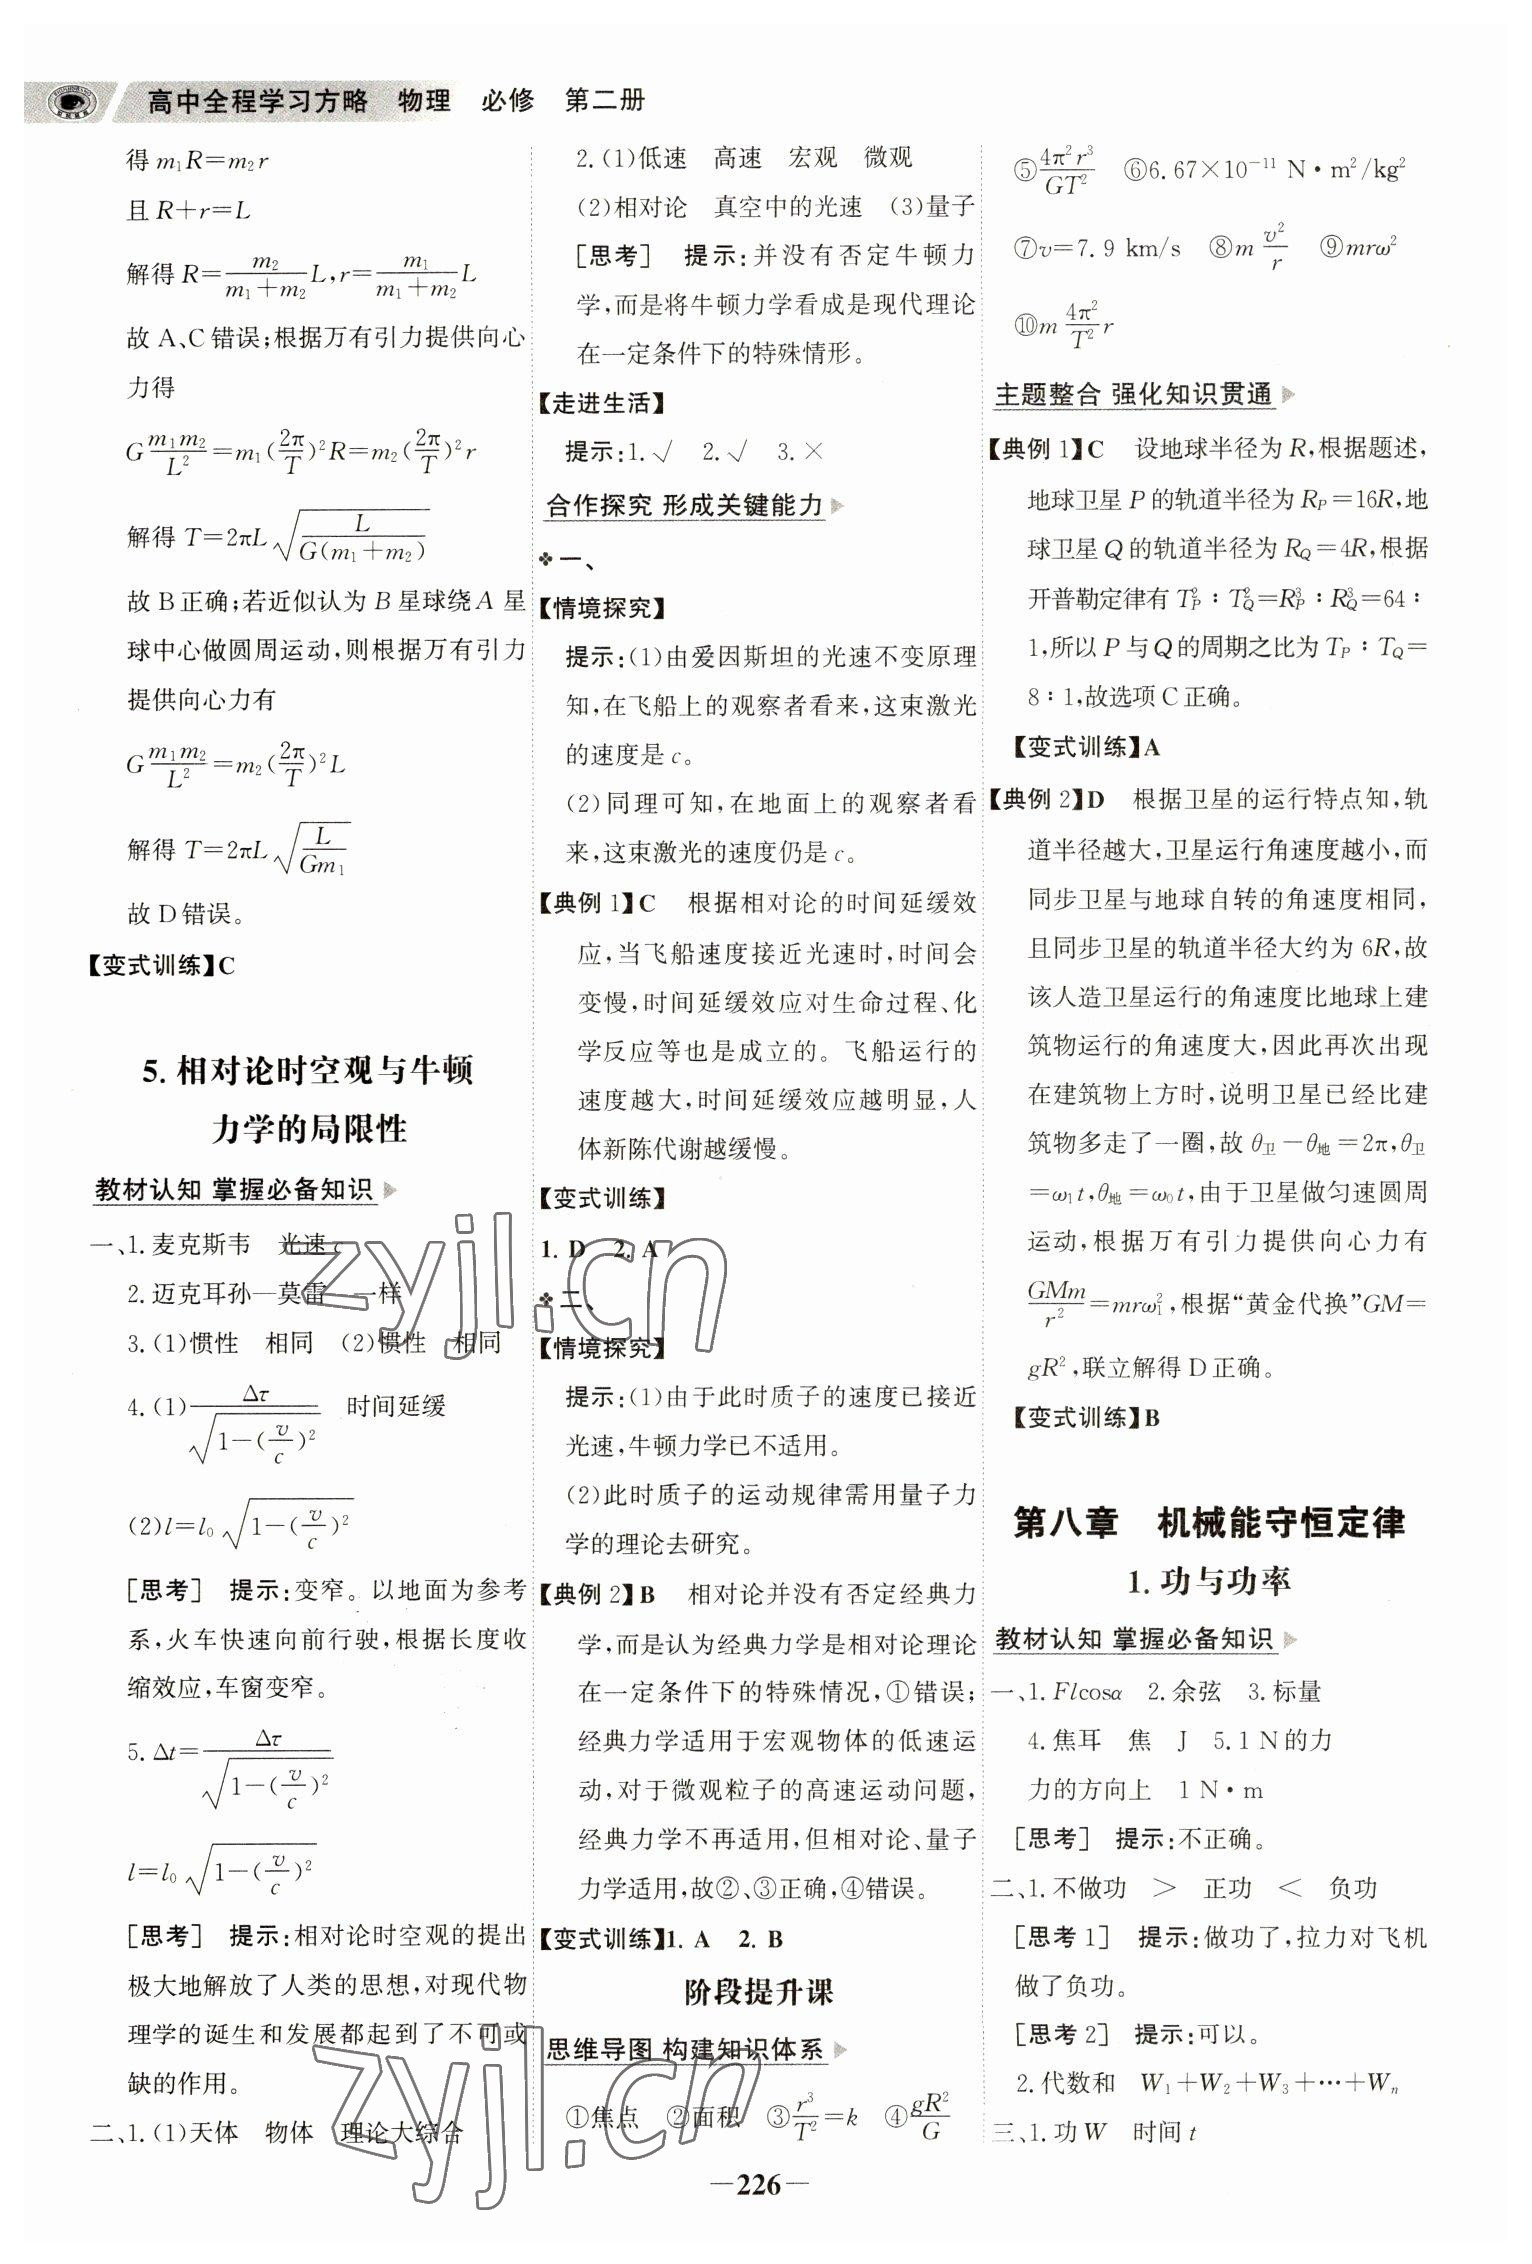 高中全程学习方略 物理 必修 第二册
得 m₁R=m₂r
且 R+r=L
解得 R=\frac{m₂}{m₁+m₂}L,r=\frac{m₁}{m₁+m₂}L
故 A、C 错误;根据万有引力提供向心
力得
G\frac{m₁m₂}{L²}=m₁(\frac{2π}{T})²R=m₂(\frac{2π}{T})²r
解得 T=2πL\sqrt{\frac{L}{G(m₁+m₂)}}
故 B 正确;若近似认为 B 星球绕 A 星
球中心做圆周运动,则根据万有引力
提供向心力有
G\frac{m₁m₂}{L²}=m₂(\frac{2π}{T})²L
解得 T=2πL\sqrt{\frac{L}{Gm₁}}
故 D 错误。
【变式训练】C
5. 相对论时空观与牛顿
力学的局限性
教材认知 掌握必备知识
一、1. 麦克斯韦 光速 c
2. 迈克耳孙—莫雷 一样
3. (1)惯性 相同 (2)惯性 相同
4. (1)\frac{Δτ}{\sqrt{1-(\frac{v}{c})²}} 时间延缓
(2)l=l₀\sqrt{1-(\frac{v}{c})²}
[思考] 提示:变窄。以地面为参考
系,火车快速向前行驶,根据长度收
缩效应,车窗变窄。
5. Δt=\frac{Δτ}{\sqrt{1-(\frac{v}{c})²}}
l=l₀\sqrt{1-(\frac{v}{c})²}
[思考] 提示:相对论时空观的提出
极大地解放了人类的思想,对现代物
理学的诞生和发展都起到了不可或
缺的作用。
二、1. (1)天体 物体 理论大综合
2. (1)低速 高速 宏观 微观
(2)相对论 真空中的光速 (3)量子
[思考] 提示:并没有否定牛顿力
学,而是将牛顿力学看成是现代理论
在一定条件下的特殊情形。
【走进生活】
提示:1. √ 2. √ 3. ×
合作探究 形成关键能力
❖ 一、
【情境探究】
提示:(1)由爱因斯坦的光速不变原理
知,在飞船上的观察者看来,这束激光
的速度是 c。
(2)同理可知,在地面上的观察者看
来,这束激光的速度仍是 c。
【典例 1】C 根据相对论的时间延缓效
应,当飞船速度接近光速时,时间会
变慢,时间延缓效应对生命过程、化
学反应等也是成立的。飞船运行的
速度越大,时间延缓效应越明显,人
体新陈代谢越缓慢。
【变式训练】
1. D 2. A
❖ 二、
【情境探究】
提示:(1)由于此时质子的速度已接近
光速,牛顿力学已不适用。
(2)此时质子的运动规律需用量子力
学的理论去研究。
【典例 2】B 相对论并没有否定经典力
学,而是认为经典力学是相对论理论
在一定条件下的特殊情况,①错误;
经典力学适用于宏观物体的低速运
动,对于微观粒子的高速运动问题,
经典力学不再适用,但相对论、量子
力学适用,故②、③正确,④错误。
【变式训练】1. A 2. B
阶段提升课
思维导图 构建知识体系
①焦点 ②面积 ③\frac{r³}{T²}=k ④\frac{gR²}{G}
⑤\frac{4π²r³}{GT²} ⑥6.67×10⁻¹¹ N·m²/kg²
⑦v=7.9 km/s ⑧m\frac{v²}{r} ⑨mrω²
⑩m\frac{4π²}{T²}r
主题整合 强化知识贯通
【典例 1】C 设地球半径为 R,根据题述,
地球卫星 P 的轨道半径为 R_P=16R,地
球卫星 Q 的轨道半径为 R_Q=4R,根据
开普勒定律有 T_P²∶T_Q²=R_P³∶R_Q³=64∶
1,所以 P 与 Q 的周期之比为 T_P∶T_Q=
8∶1,故选项 C 正确。
【变式训练】A
【典例 2】D 根据卫星的运行特点知,轨
道半径越大,卫星运行角速度越小,而
同步卫星与地球自转的角速度相同,
且同步卫星的轨道半径大约为 6R,故
该人造卫星运行的角速度比地球上建
筑物运行的角速度大,因此再次出现
在建筑物上方时,说明卫星已经比建
筑物多走了一圈,故 θ卫-θ地=2π,θ卫
=ω₁t,θ地=ω₀t,由于卫星做匀速圆周
运动,根据万有引力提供向心力有
\frac{GMm}{r²}=mrω₁²,根据“黄金代换”GM=
gR²,联立解得 D 正确。
【变式训练】B
第八章 机械能守恒定律
1. 功与功率
教材认知 掌握必备知识
一、1. Flcosα 2. 余弦 3. 标量
4. 焦耳 焦 J 5. 1 N 的力
力的方向上 1 N·m
[思考] 提示:不正确。
二、1. 不做功 > 正功 < 负功
[思考 1] 提示:做功了,拉力对飞机
做了负功。
[思考 2] 提示:可以。
2. 代数和 W₁+W₂+W₃+…+Wₙ
三、1. 功 W 时间 t
—226—
zyjl.cn
zyjl.cn